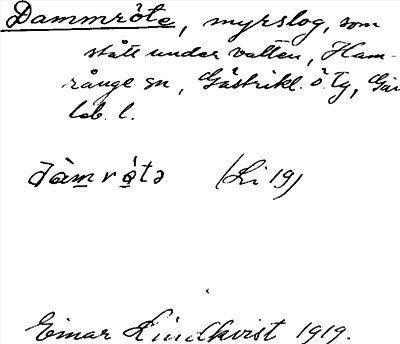 Dammröte, myrslog, som
stått under vatten, Ham-
rånge sn, Gästrikl. ö. tg, Gäv
leb. l.
dàmrö́tə (Li 19)
Einar Lindkvist 1919.